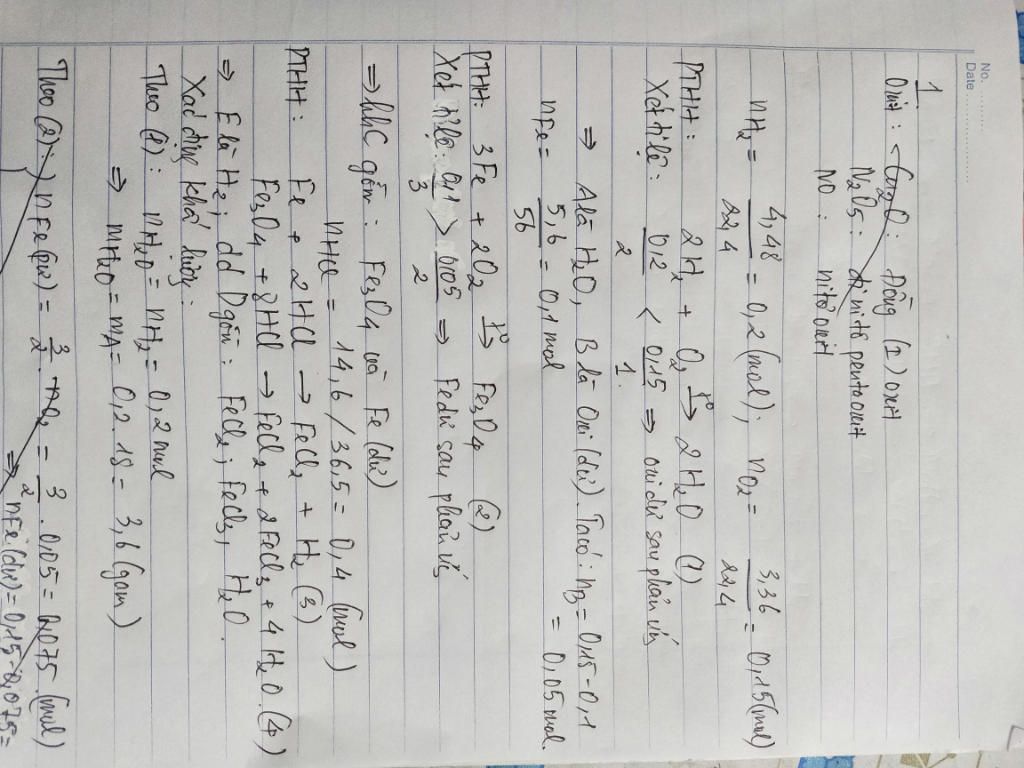 No.
Date
1
Oxit : Cu₂O : Đồng (I) oxit
N₂O₅ : đi nitơ pentaoxit
NO : nitơ oxit
nH₂ = 4,48 / 22,4 = 0,2 (mol) ; nO₂ = 3,36 / 22,4 = 0,15 (mol)
PTHH : 2H₂ + O₂ t°→ 2H₂O (1)
Xét tỉ lệ : 0,2 / 2 < 0,15 / 1 ⇒ oxi dư sau phản ứng
⇒ A là H₂O, B là Oxi (dư). Ta có : nB = 0,15 - 0,1
= 0,05 mol.
nFe = 5,6 / 56 = 0,1 mol
PTHH : 3Fe + 2O₂ t°→ Fe₃O₄ (2)
Xét tỉ lệ : 0,1 / 3 > 0,05 / 2 ⇒ Fe dư sau phản ứng
⇒ hhC gồm : Fe₃O₄ và Fe (dư)
nHCl = 14,6 / 36,5 = 0,4 (mol)
PTHH : Fe + 2HCl → FeCl₂ + H₂ (3)
Fe₃O₄ + 8HCl → FeCl₂ + 2FeCl₃ + 4H₂O. (4)
⇒ E là H₂ ; dd D gồm : FeCl₂ ; FeCl₃ ; H₂O.
Xác định khối lượng :
Theo (1) : nH₂O = nH₂ = 0,2 mol
⇒ mH₂O = mA = 0,2 . 18 = 3,6 (gam)
Theo (2) : nFe (pư) = 3/2 . nO₂ = 3/2 . 0,05 = 0,075 (mol)
⇒ nFe (dư) = 0,15 - 0,075 =